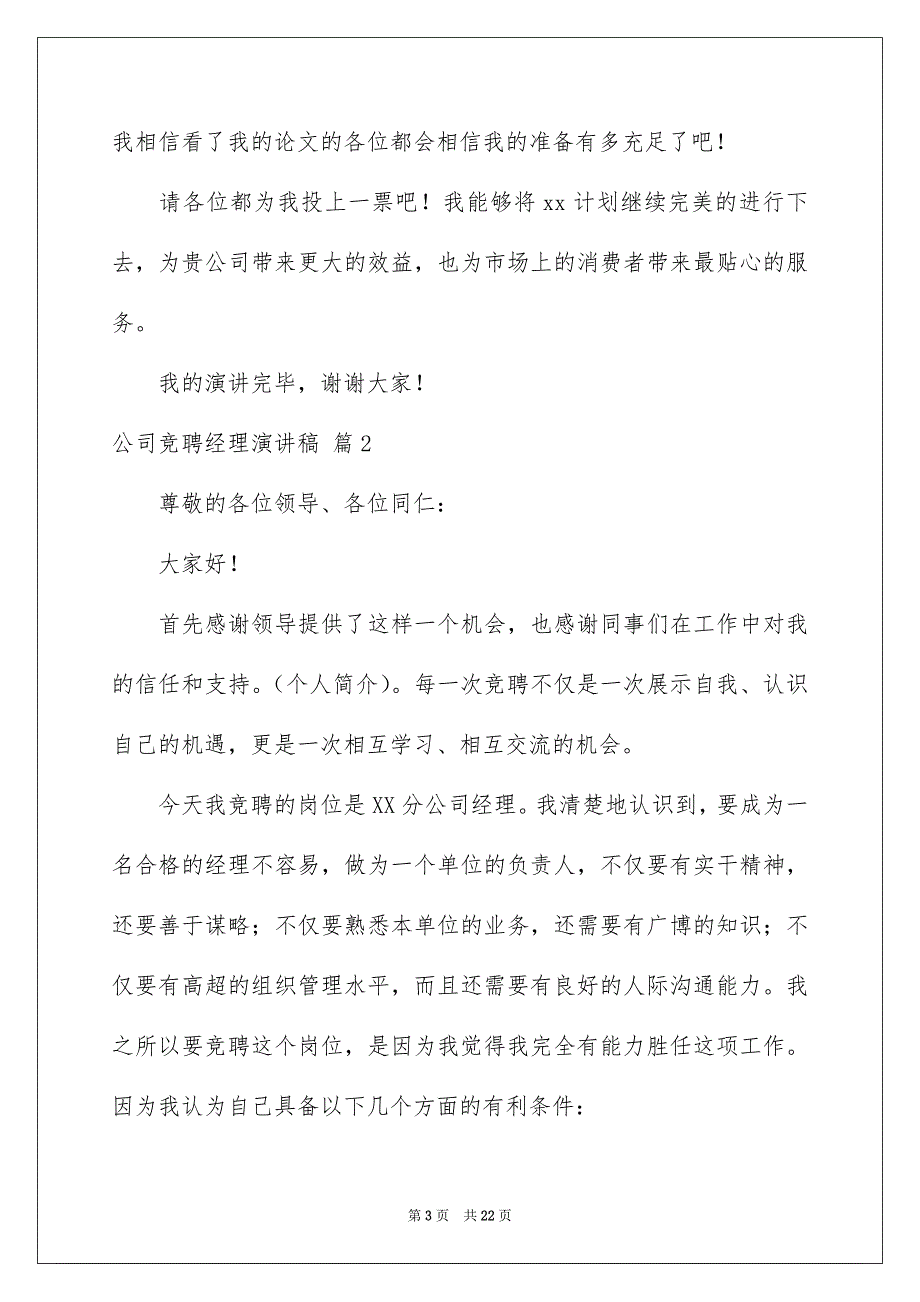 我相信看了我的论文的各位都会相信我的准备有多充足了吧！
请各位都为我投上一票吧！我能够将 xx 计划继续完美的进行下
去，为贵公司带来更大的效益，也为市场上的消费者带来最贴心的服
务。
我的演讲完毕，谢谢大家！
公司竞聘经理演讲稿 篇 2
尊敬的各位领导、各位同仁：
大家好！
首先感谢领导提供了这样一个机会，也感谢同事们在工作中对我
的信任和支持。（个人简介）。每一次竞聘不仅是一次展示自我、认识
自己的机遇，更是一次相互学习、相互交流的机会。
今天我竞聘的岗位是 XX 分公司经理。我清楚地认识到，要成为一
名合格的经理不容易，做为一个单位的负责人，不仅要有实干精神，
还要善于谋略；不仅要熟悉本单位的业务，还需要有广博的知识；不
仅要有高超的组织管理水平，而且还需要有良好的人际沟通能力。我
之所以要竞聘这个岗位，是因为我觉得我完全有能力胜任这项工作。
因为我认为自己具备以下几个方面的有利条件：
第 3 页 共 22 页